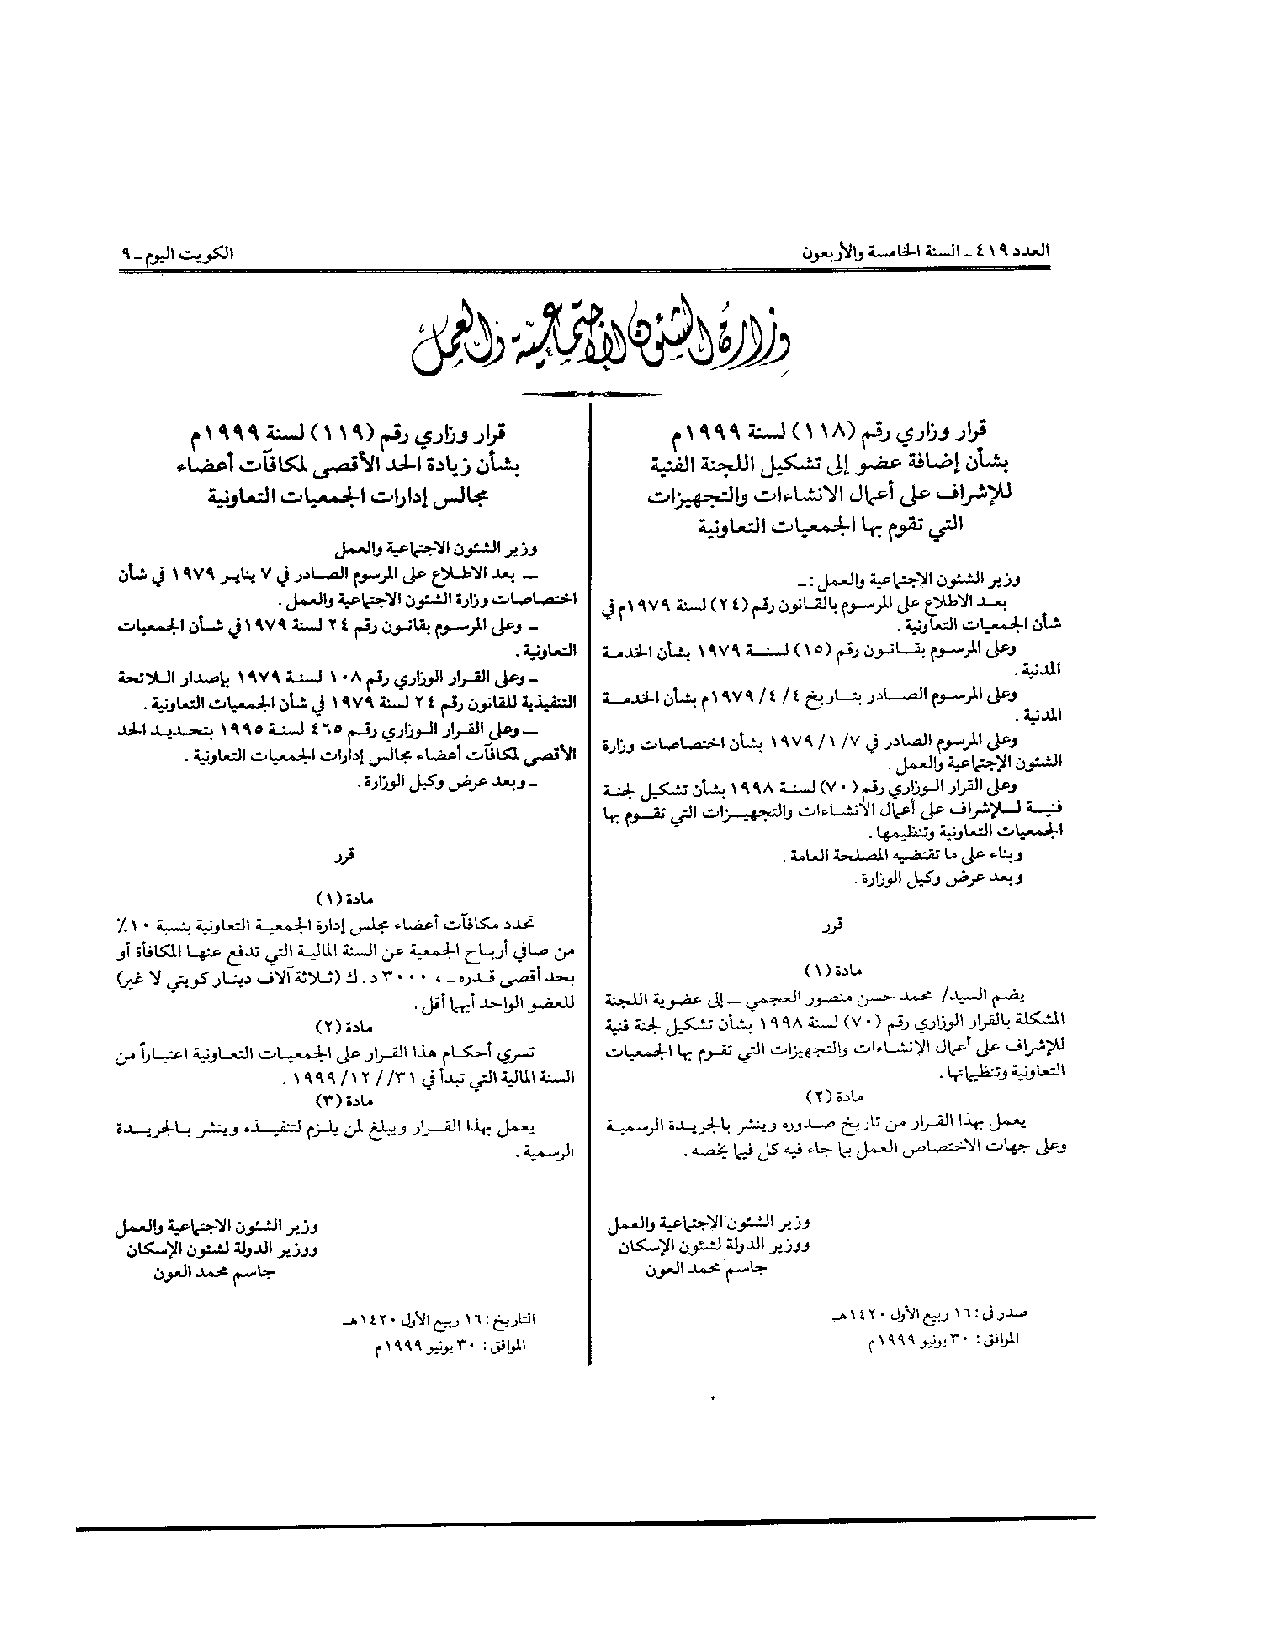 العدد ٤١٩ ـ السنة الخامسة والأربعون
الكويت اليوم ـ ٩
وزارة الشئون الاجتماعية والعمل
قرار وزاري رقم (١١٨) لسنة ١٩٩٩م
بشأن إضافة عضو إلى تشكيل اللجنة الفنية
للإشراف على أعمال الانشاءات والتجهيزات
التي تقوم بها الجمعيات التعاونية
وزير الشئون الاجتماعية والعمل : ـ
بعد الاطلاع على المرسوم بالقانون رقم (٢٤) لسنة ١٩٧٩م في
شأن الجمعيات التعاونية .
وعلى المرسوم بقانون رقم (١٥) لسنة ١٩٧٩ بشأن الخدمة
المدنية .
وعلى المرسوم الصادر بتاريخ ٤/ ٤/ ١٩٧٩م بشأن الخدمة
المدنية .
وعلى المرسوم الصادر في ٧/ ١/ ١٩٧٩ بشأن اختصاصات وزارة
الشئون الإجتماعية والعمل .
وعلى القرار الوزاري رقم (٧٠) لسنة ١٩٩٨ بشأن تشكيل لجنة
فنية للإشراف على أعمال الانشاءات والتجهيزات التي تقوم بها
الجمعيات التعاونية وتنظيمها .
وبناء على ما تقتضيه المصلحة العامة .
وبعد عرض وكيل الوزارة .
قرر
مادة (١)
يضم السيد/ محمد حسن منصور العجمي ـ إلى عضوية اللجنة
المشكلة بالقرار الوزاري رقم (٧٠) لسنة ١٩٩٨ بشأن تشكيل لجنة فنية
للإشراف على أعمال الانشاءات والتجهيزات التي تقوم بها الجمعيات
التعاونية وتنظيماتها .
مادة (٢)
يعمل بهذا القرار من تاريخ صدوره وينشر بالجريدة الرسمية
وعلى جهات الاختصاص العمل بما جاء فيه كل فيما يخصه .
وزير الشئون الاجتماعية والعمل
ووزير الدولة لشئون الإسكان
جاسم محمد العون
صدر في : ١٦ ربيع الأول ١٤٢٠هـ
الموافق : ٣٠ يونيو ١٩٩٩م
قرار وزاري رقم (١١٩) لسنة ١٩٩٩م
بشأن زيادة الحد الأقصى لمكافآت أعضاء
مجالس إدارات الجمعيات التعاونية
وزير الشئون الاجتماعية والعمل
ـ بعد الاطلاع على المرسوم الصادر في ٧ يناير ١٩٧٩ في شأن
اختصاصات وزارة الشئون الاجتماعية والعمل .
ـ وعلى المرسوم بقانون رقم ٢٤ لسنة ١٩٧٩ في شأن الجمعيات
التعاونية .
ـ وعلى القرار الوزاري رقم ١٠٨ لسنة ١٩٧٩ بإصدار اللائحة
التنفيذية للقانون رقم ٢٤ لسنة ١٩٧٩ في شأن الجمعيات التعاونية .
ـ وعلى القرار الوزاري رقم ٤٦٥ لسنة ١٩٩٥ بتحديد الحد
الأقصى لمكافآت أعضاء مجالس إدارات الجمعيات التعاونية .
ـ وبعد عرض وكيل الوزارة .
قرر
مادة (١)
تحدد مكافآت أعضاء مجلس إدارة الجمعية التعاونية بنسبة ١٠٪
من صافي أرباح الجمعية عن السنة المالية التي تدفع عنها المكافأة أو
بحد أقصى قدره ـ ، ٣٠٠٠ د . ك (ثلاثة آلاف دينار كويتي لا غير)
للعضو الواحد أيهما أقل .
مادة (٢)
تسري أحكام هذا القرار على الجمعيات التعاونية اعتباراً من
السنة المالية التي تبدأ في ٣١/ / ١٢/ ١٩٩٩ .
مادة (٣)
يعمل بهذا القرار ويبلغ لمن يلزم لتنفيذه وينشر بالجريدة
الرسمية .
وزير الشئون الاجتماعية والعمل
ووزير الدولة لشئون الإسكان
جاسم محمد العون
التاريخ : ١٦ ربيع الأول ١٤٢٠هـ
الموافق : ٣٠ يونيو ١٩٩٩م